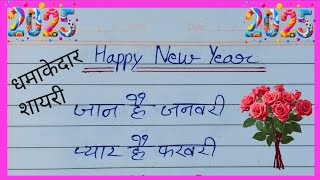 2025 2025
धमाकेदार
शायरी
Happy New Year
जान है जनवरी
प्यार है फरवरी